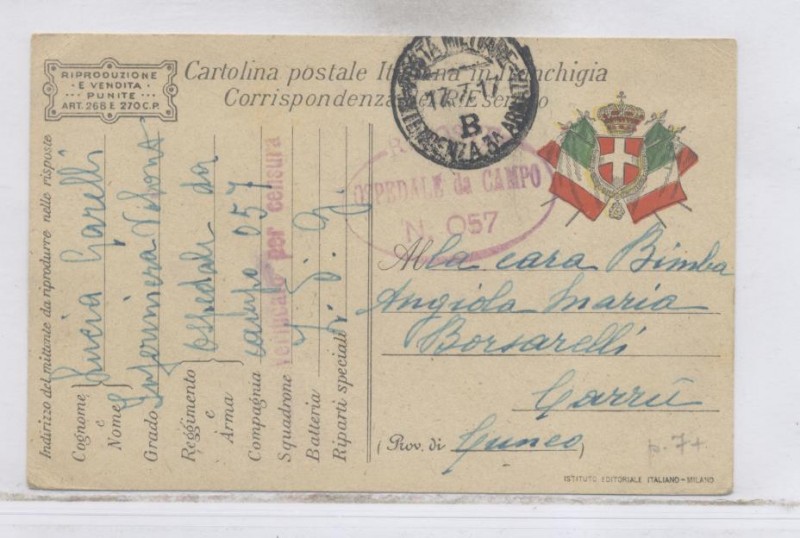 RIPRODUZIONE
E VENDITA
PUNITE
ART. 268 E 270 C.P.
Cartolina postale Italiana in franchigia
Corrispondenza del R. Esercito
POSTA MILITARE
17.7.17
B
INTENDENZA 3ª ARMATA
OSPEDALE da CAMPO
N. 057
Alla cara Bimba
Angiola Maria
Borsarelli
Carrù
(Prov. di Cuneo)
p. 7+
ISTITUTO EDITORIALE ITALIANO - MILANO
Indirizzo del mittente da riprodurre nelle risposte
Cognome e Nome Lucia Garelli
Grado Infermiera Volont
Reggimento e Arma Ospedale da
Compagnia campo 057
verificato per censura
Squadrone
Batteria
Riparti speciali